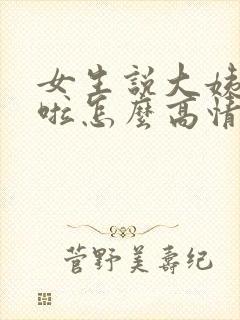 女生說大姨
啦怎麼高情
菅野美壽紀